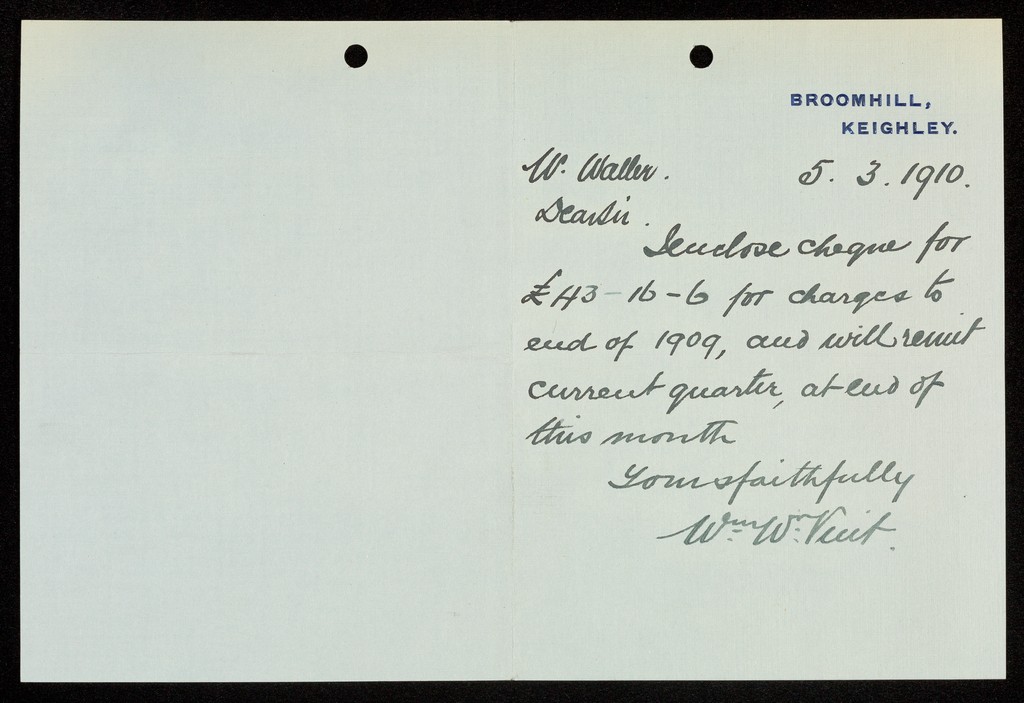 BROOMHILL,
KEIGHLEY.
W. Waller. 5. 3. 1910.
Dear Sir.
I enclose cheque for
£43-16-6 for charges to
end of 1909, and will remit
current quarter, at end of
this month
Yours faithfully
Wm. Wr.